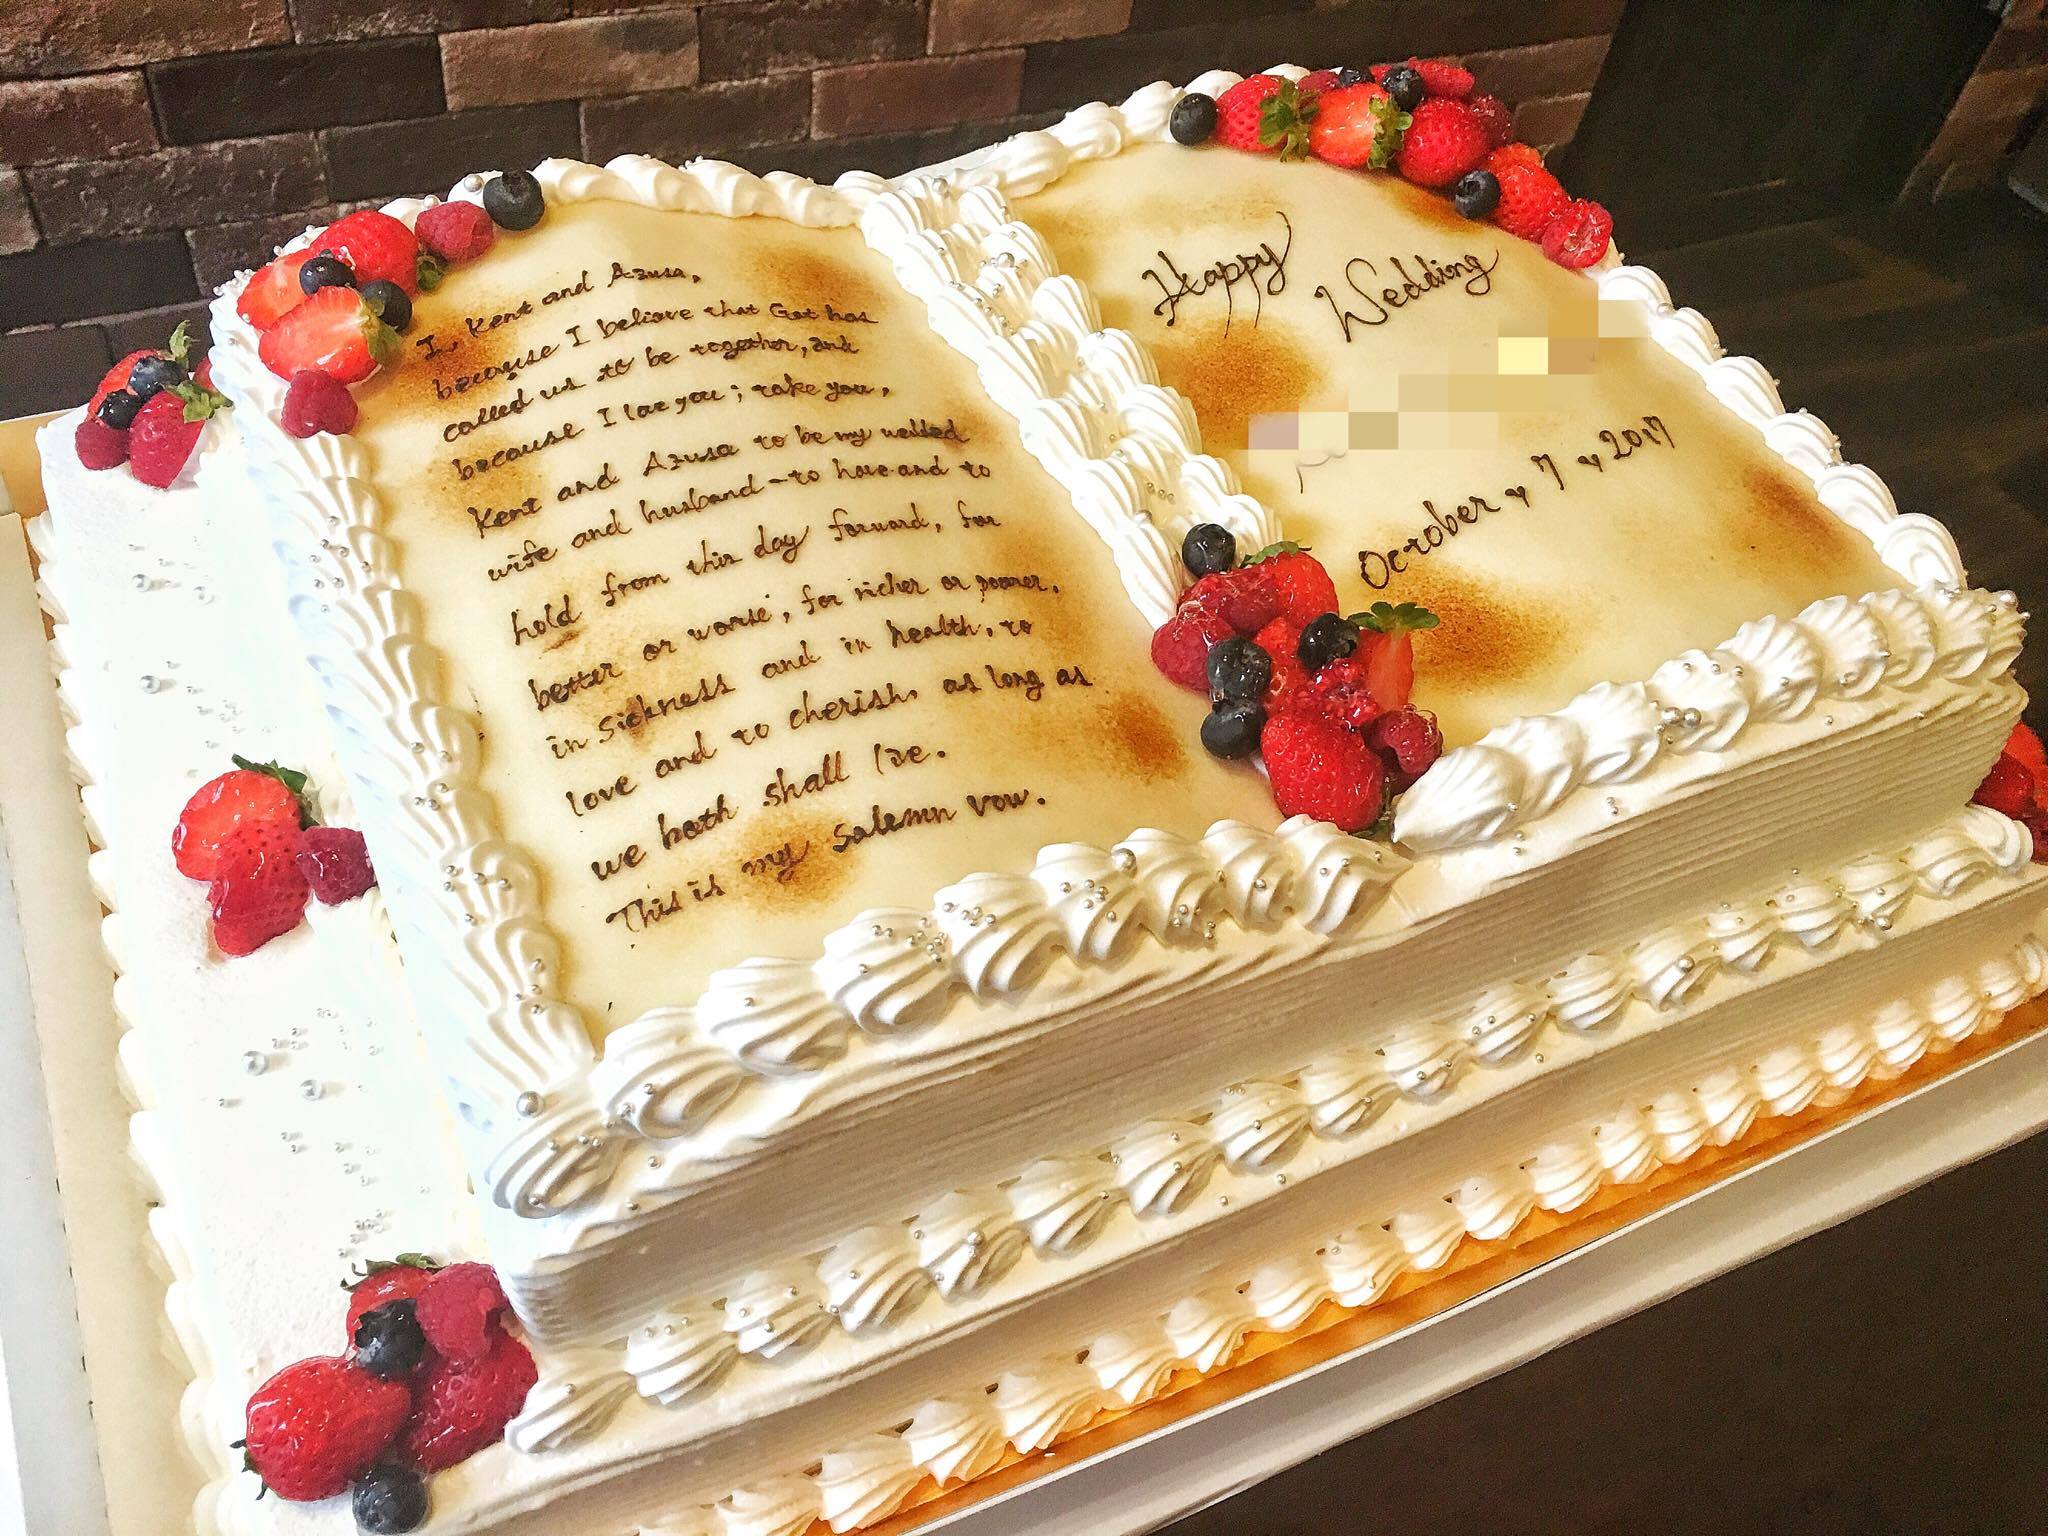 I, Kent and Azusa,
because I believe that Got has
called us to be together, and
because I love you; take you,
Kent and Azusa to be my wedded
wife and husband - to have and to
hold from this day forward, for
better or worse, for richer or poorer,
in sickness and in health, to
love and to cherish, as long as
we both shall live.
This is my solemn vow.
Happy Wedding
October, 7, 2017